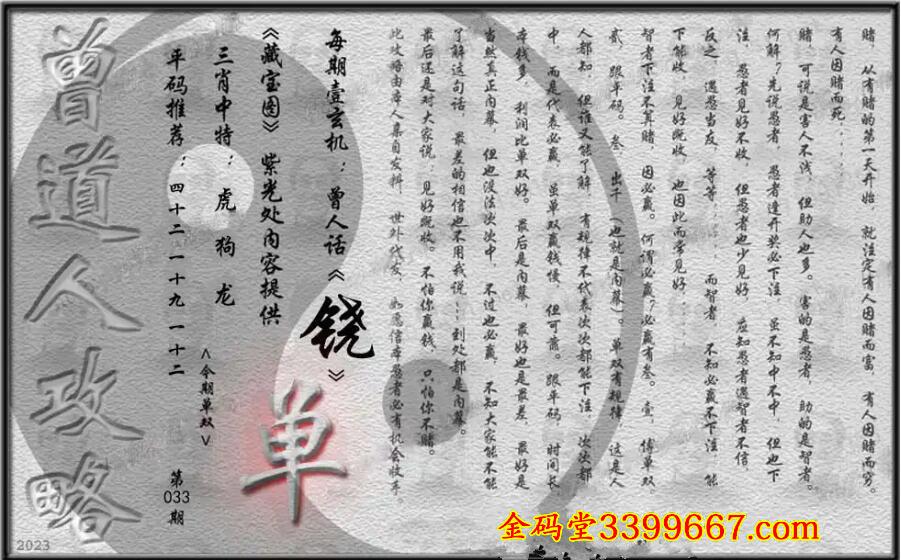 赌，从有赌的第一天开始，就注定有人因赌而富，有人因赌而穷。
有人因赌而死……
赌，可说是害人不浅，但助人也多。害的是愚者，助的是智者。
何解？先说愚者，愚者逢开奖必下注，虽不知中不中，但也下
注，愚者见好不收，但愚者也少见好，应知愚者遇智者不信，
反之，遇愚当友，等等……而智者，不知必赢不下注，能
下能收，见好既收，也因此而常见好……
智者下注不算赌，因必赢。何谓必赢？必赢有叁。壹，博单双。
贰，跟平码。叁，出千（也就是内幕）。单双有规律，这是人
人都知，但谁又能了解，有规律不代表次次都能下注，次次都
中，而是代表必赢，虽单双赢钱慢，但可靠。跟平码，时间长，
本钱多，利润比单双好。最后是内幕，最好也是最差，最好是
当然真正内幕，但也没法次次中，不过也必赢，不知大家能不能
了解这句话，最差的相信也不用我说……到处都是内幕。
最后还是对大家说，见好既收。不怕你赢钱，只怕你不赌。
此攻略由本人亲自发料，世外代发，如愿信本愚者必有机会收手。
每期壹玄机：曾人话《饶》
《藏宝图》紫光处内容提供
三肖中特：虎狗龙
平码推荐：四十二一十九一十二
<今期单双>
单
第033期
曾道人攻略
金码堂3399667.com
2023